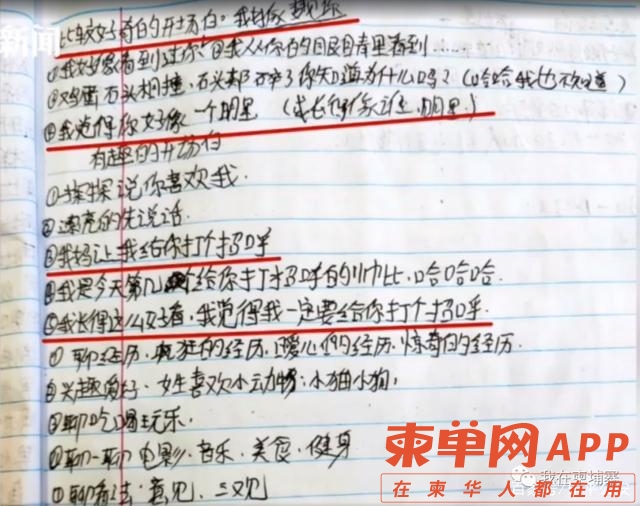 新闻
比较好奇的开场白。我好像
①我好像看到过你。②我从你的眼睛里看到……
③鸡蛋石头相撞,石头都碎了你知道为什么吗?(哈哈我也不知道)
④我觉得你好像一个明星 (成长得像谁,明星)
有趣的开场白
①探探说你喜欢我.
②漂亮的先说话.
③我妈让我给你打个招呼
④我是今天第几个给你打招呼的小帅比,哈哈哈.
⑤我长得这么好看,我觉得我一定要给你打个招呼.
①聊经历,疯狂的经历,暖心的经历,惊奇的经历.
②兴趣爱好.女生喜欢小动物:小猫小狗,
③聊吃喝玩乐.
④聊一聊 电影.音乐.美食.健身
⑤聊看法.意见.三观
柬单网APP
在柬华人都在用
我在柬埔寨